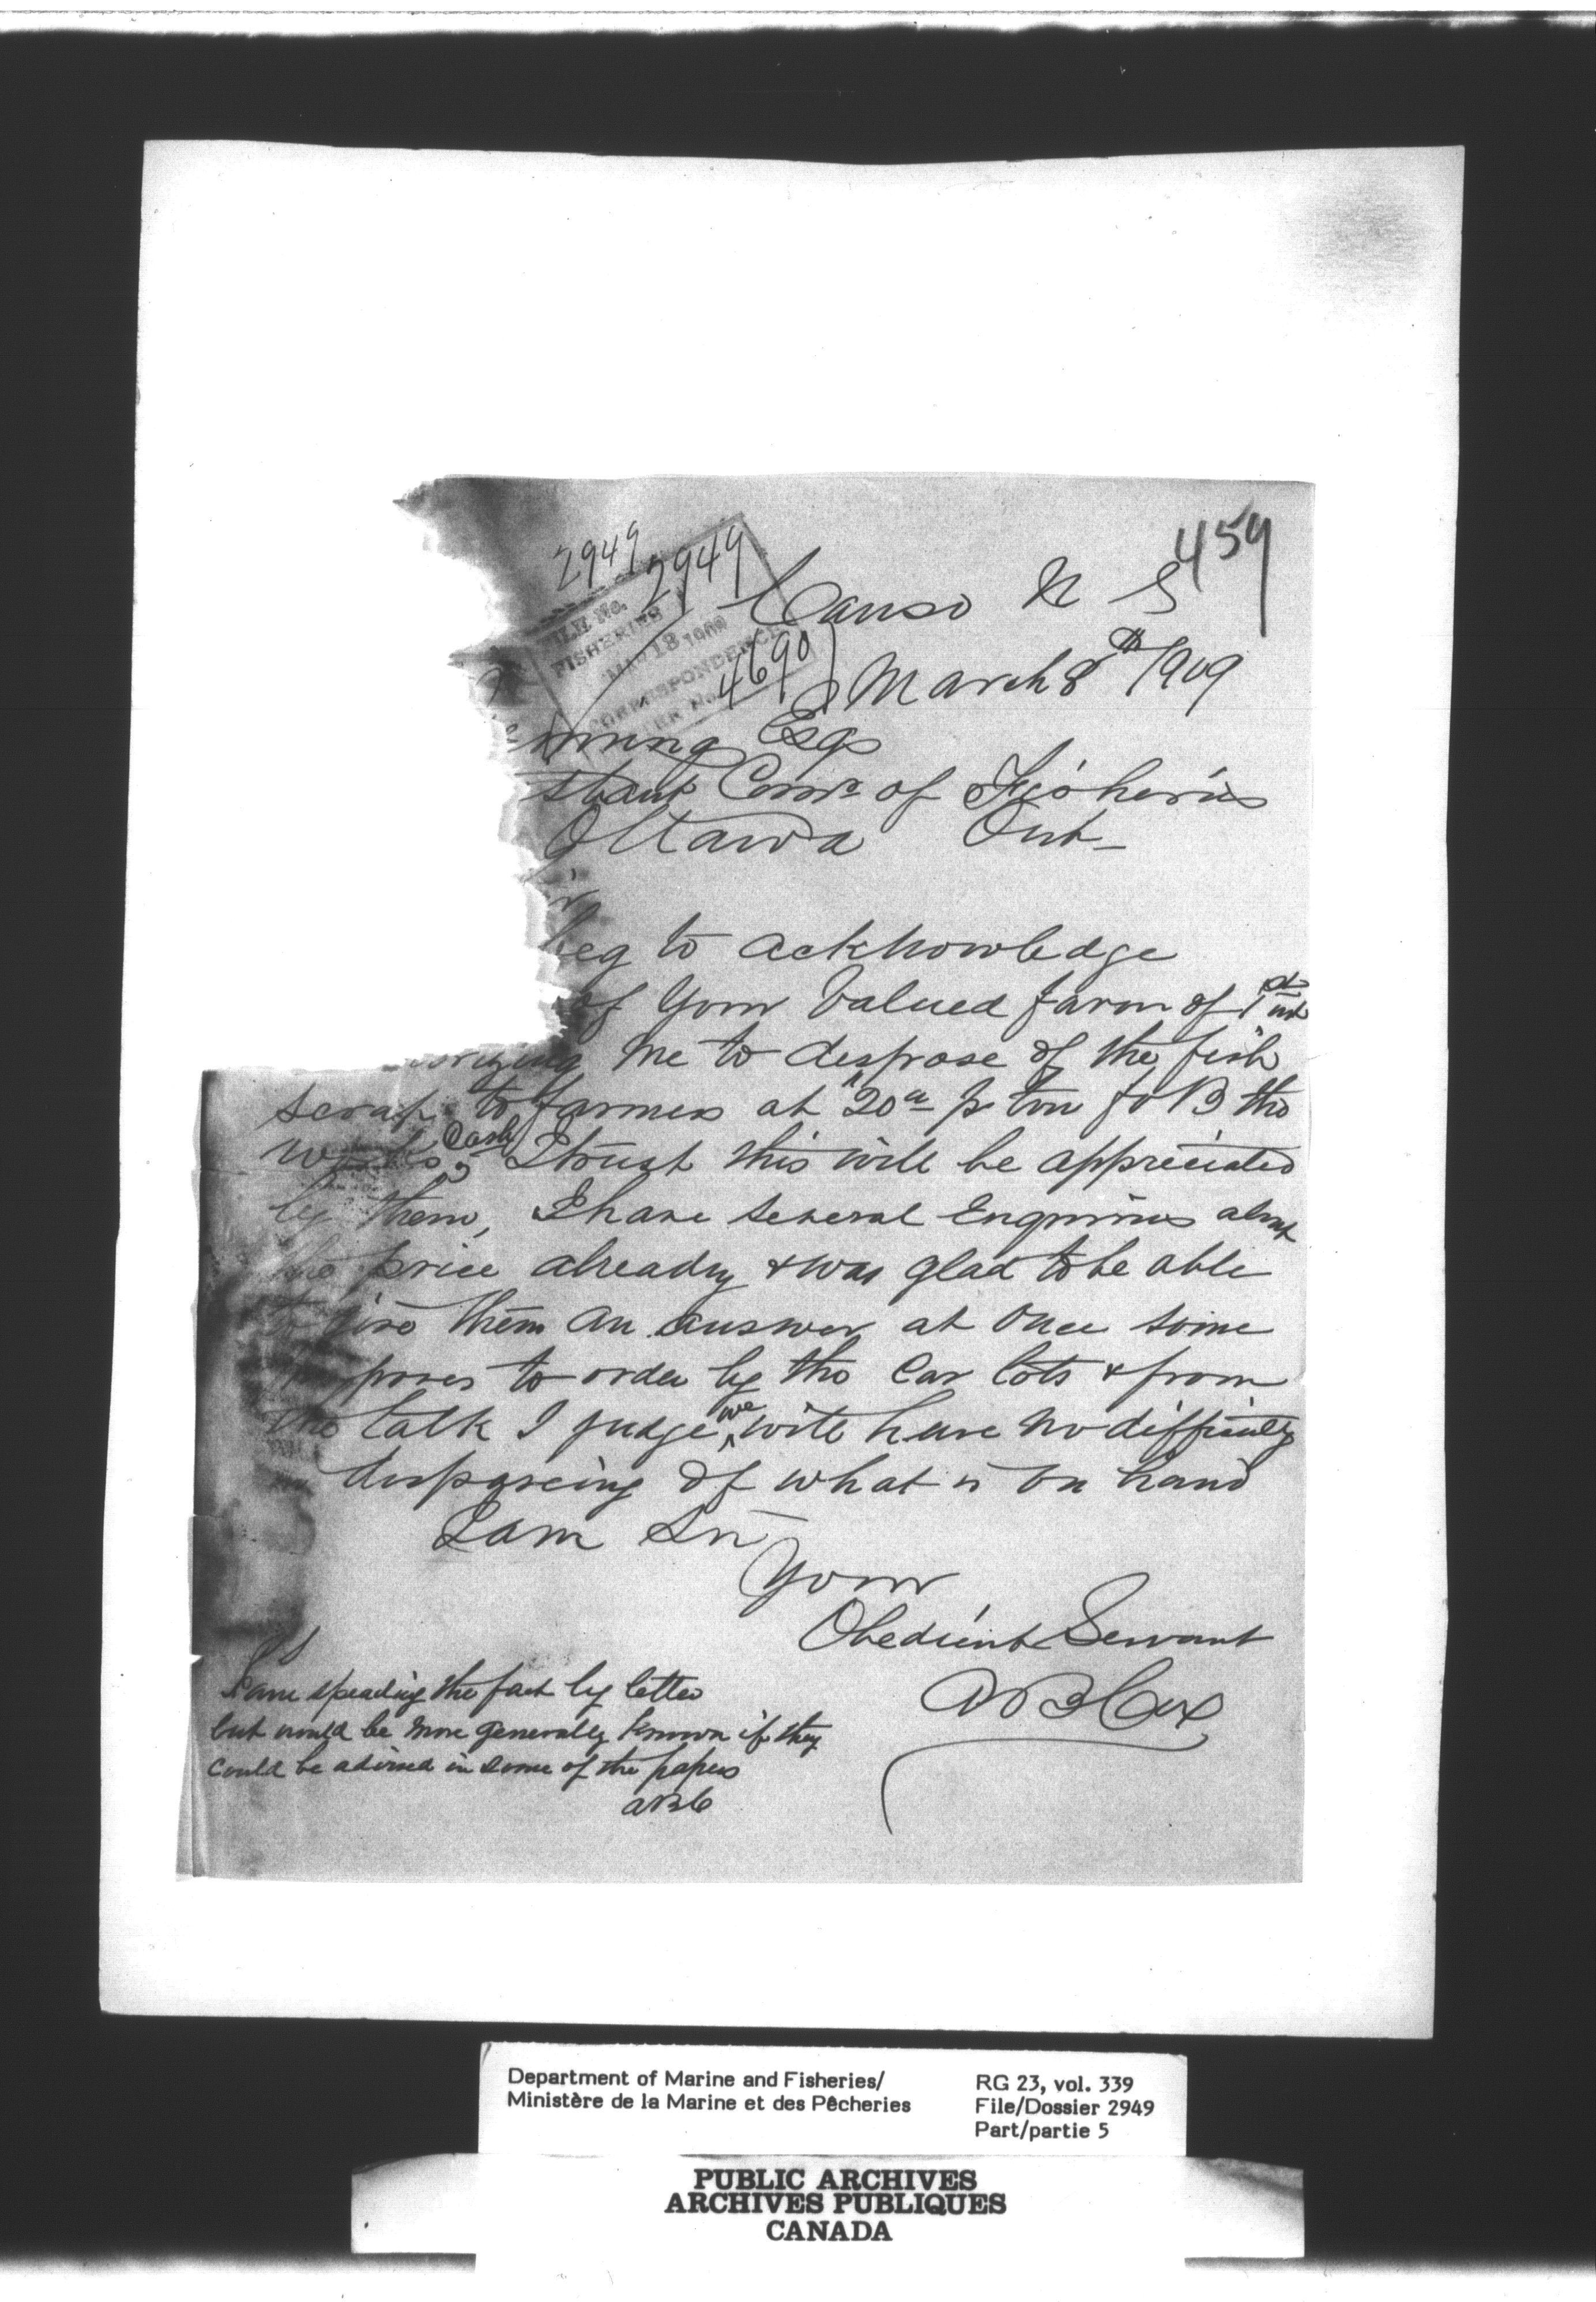 459
2949
2949
FILE No.
FISHERIES
MAR 18 1909
CORRESPONDENCE
4690
Canso N S
March 8th 1909
Esq
Comr of Fisheries
Ottawa Ont_
beg to acknowledge
of Your Valued favor of 1st inst
me to dispose of the fish
scrap to farmers at $20 00 pr ton fo B the
works Cash, I trust this will be appreciated
by them, I have several Enquiries about
the price already & was glad to be able
to give them an answer at once some
to order by the Car lots & from
the talk I judge we will have no difficulty
disposeing of what is on hand
I am Sir
Your
Obedient Servant
A B Cox
PS
I am spreading the fact by letter
but would be more generally known if they
could be advised in some of the papers
ABC
Department of Marine and Fisheries/
Ministère de la Marine et des Pêcheries
RG 23, vol. 339
File/Dossier 2949
Part/partie 5
PUBLIC ARCHIVES
ARCHIVES PUBLIQUES
CANADA